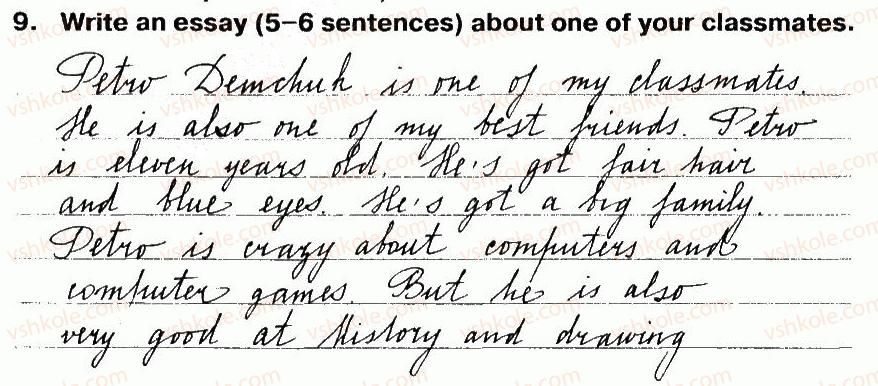 9. Write an essay (5–6 sentences) about one of your classmates.
Petro Demchuk is one of my classmates.
He is also one of my best friends. Petro
is eleven years old. He's got fair hair
and blue eyes. He's got a big family.
Petro is crazy about computers and
computer games. But he is also
very good at History and drawing